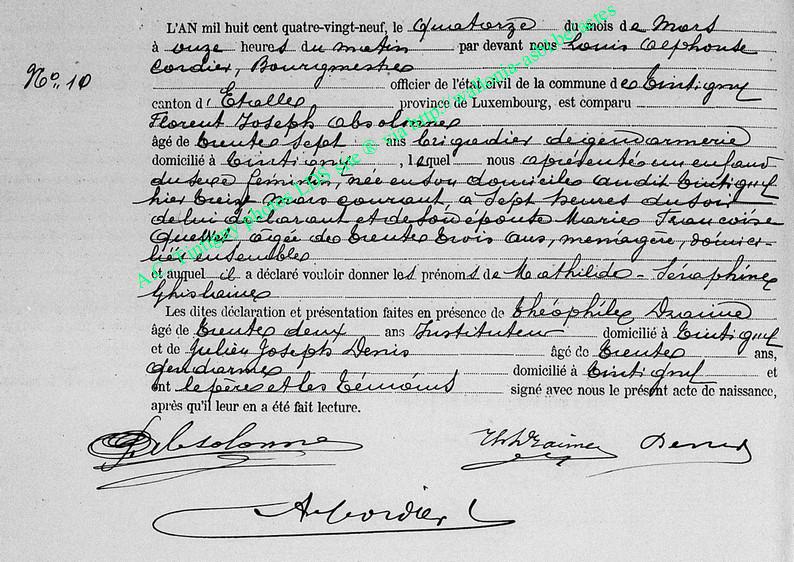 L'AN mil huit cent quatre-vingt-neuf, le quatorze du mois de Mars
à onze heures du matin par devant nous Louis Alphonse
Cordier, Bourgmestre
No. 10
officier de l'état civil de la commune de Tintigny
canton d'Etalle province de Luxembourg, est comparu
Florent Joseph Absolonne
âgé de trente sept ans brigadier de gendarmerie
domicilié à Tintigny, lequel nous a présenté un enfant
du sexe féminin, née en son domicile audit Tintigny
hier treize mars courant, à sept heures du soir
de lui déclarant et de son épouse Marie Françoise
agée de trente trois ans, ménagère, domici-
liés ensemble
et auquel il a déclaré vouloir donner les prénoms de Mathilde - Séraphine
Ghislaine
Les dites déclaration et présentation faites en présence de Théophile
âgé de trente deux ans Instituteur domicilié à Tintigny
et de Julien Joseph Denis âgé de trente ans,
gendarme domicilié à Tintigny et
ont le père et les témoins signé avec nous le présent acte de naissance,
après qu'il leur en a été fait lecture.
Absolonne Denis
A. Cordier
A.C. Tintigny photos LDS site ® via http://wallonia-asbl.be/actes